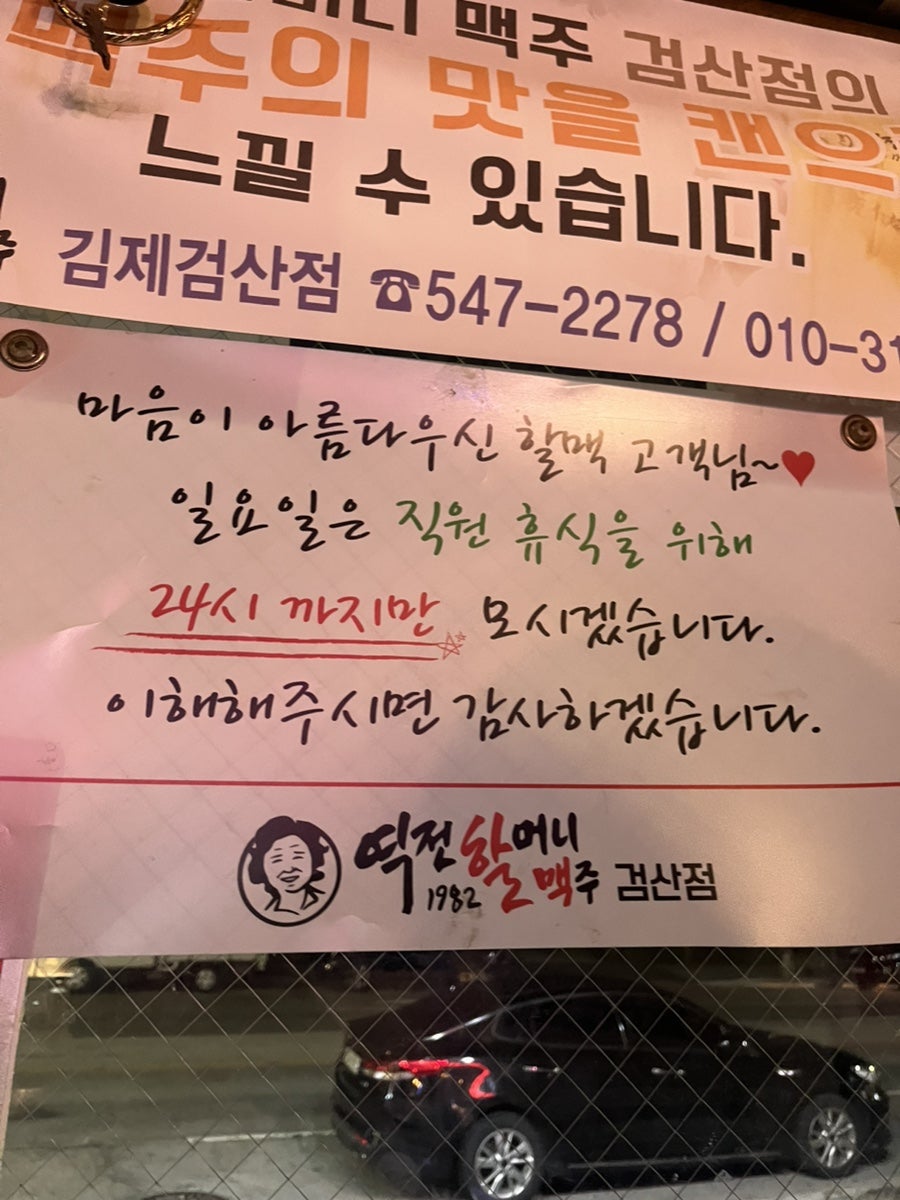 맥주 검산점의
맥주의 맛을 캔으
느낄 수 있습니다.
김제검산점 ☎547-2278 / 010-31
마음이 아름다우신 할맥 고객님~♥
일요일은 직원 휴식을 위해
24시 까지만 모시겠습니다.
이해해주시면 감사하겠습니다.
역전할머니
1982 맥주 검산점